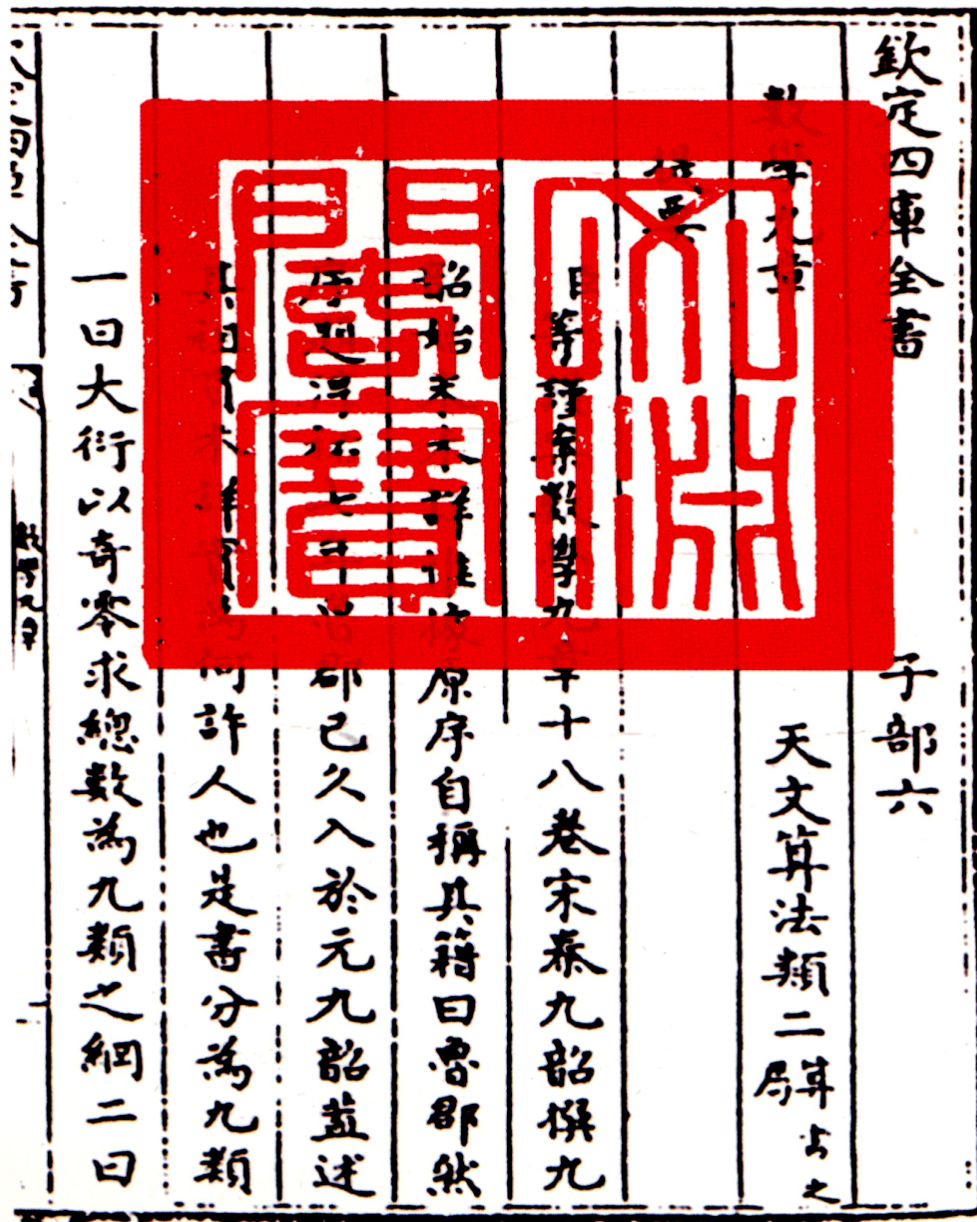 欽定四庫全書 子部六
數學九章 天文算法類二 算書之屬
提要
臣等謹案數學九章十八卷宋秦九韶撰九
韶始末未詳惟據原序自稱其籍曰魯郡然
序題淳祐七年魯郡已久入於元九韶蓋述
其祖貫未詳實為何許人也是書分為九類
一曰大衍以奇零求總數為九類之綱二曰
數學九章
文淵閣寶